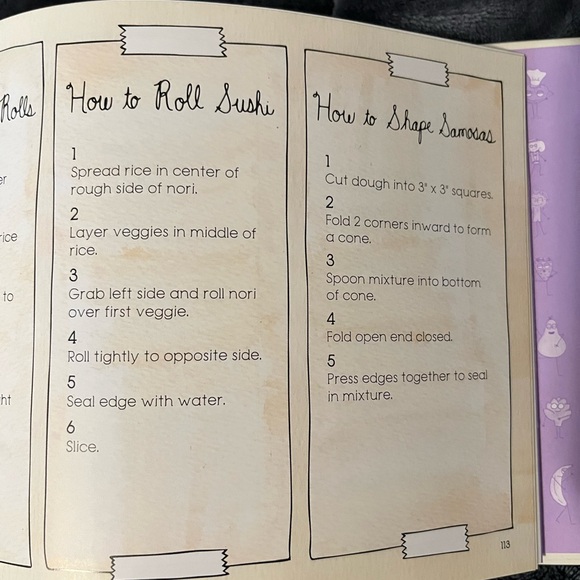 Rolls
er
rice
to
ht
How to Roll Sushi
1
Spread rice in center of
rough side of nori.
2
Layer veggies in middle of
rice.
3
Grab left side and roll nori
over first veggie.
4
Roll tightly to opposite side.
5
Seal edge with water.
6
Slice.
How to Shape Samosas
1
Cut dough into 3" x 3" squares.
2
Fold 2 corners inward to form
a cone.
3
Spoon mixture into bottom
of cone.
4
Fold open end closed.
5
Press edges together to seal
in mixture.
113